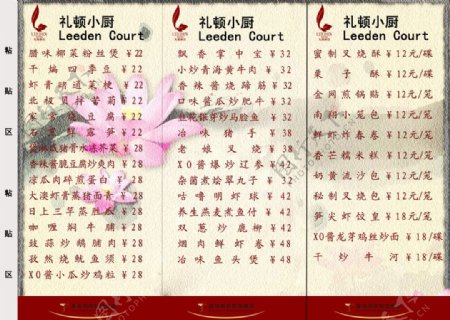 礼顿小厨
Leeden Court
腊味椰菜粉丝煲 ¥22
干煸四季豆 ¥22
虾膏啫通菜梗 ¥22
北极贝拌苦菊 ¥22
家常烧豆腐 ¥22
石 露笋 ¥28
酱 猪膏水冻芥菜 ¥28
香辣酱脆豆腐炒爽肉 ¥28
凉瓜肉碎煎蛋白 ¥28
大澳虾膏蒸猪面肉 ¥28
日上三竿蒸胜瓜 ¥28
咖喱焖牛腩 ¥28
豉蒜炒鹅脯肉 ¥28
孜然烧鱿鱼须 ¥28
XO酱小瓜炒鸡粒 ¥28
礼顿小厨
Leeden Court
飘香掌中宝 ¥32
小炒青海黄牛肉 ¥32
香辣酱烧蹄筋 ¥32
口味酱瓜炒肥牛 ¥32
丝花银芽炒马脸鱼 ¥32
冶味猪手 ¥38
老娘叉烧 ¥38
XO酱爆炒辽参 ¥42
杂菌煮烩翠丸子 ¥32
咕噜明虾球 ¥42
养生燕麦煮鱼付 ¥42
双葱炒鹿柳 ¥42
烟肉鲜虾卷 ¥48
冶味鱼头煲 ¥48
礼顿小厨
Leeden Court
蜜制叉烧酥 ¥12元/碟
栗子酥 ¥12元/碟
金网煎锅贴 ¥12元/碟
南翔小笼包 ¥12元/笼
鲜虾炸春卷 ¥12元/笼
香芒糯米糕 ¥12元/笼
奶黄流沙包 ¥12元/笼
秘制叉烧包 ¥12元/笼
笋尖虾饺皇 ¥18元/笼
XO酱龙芽鸡丝炒面 ¥18/碟
干炒牛河 ¥18/碟
粘
贴
区
粘
贴
区